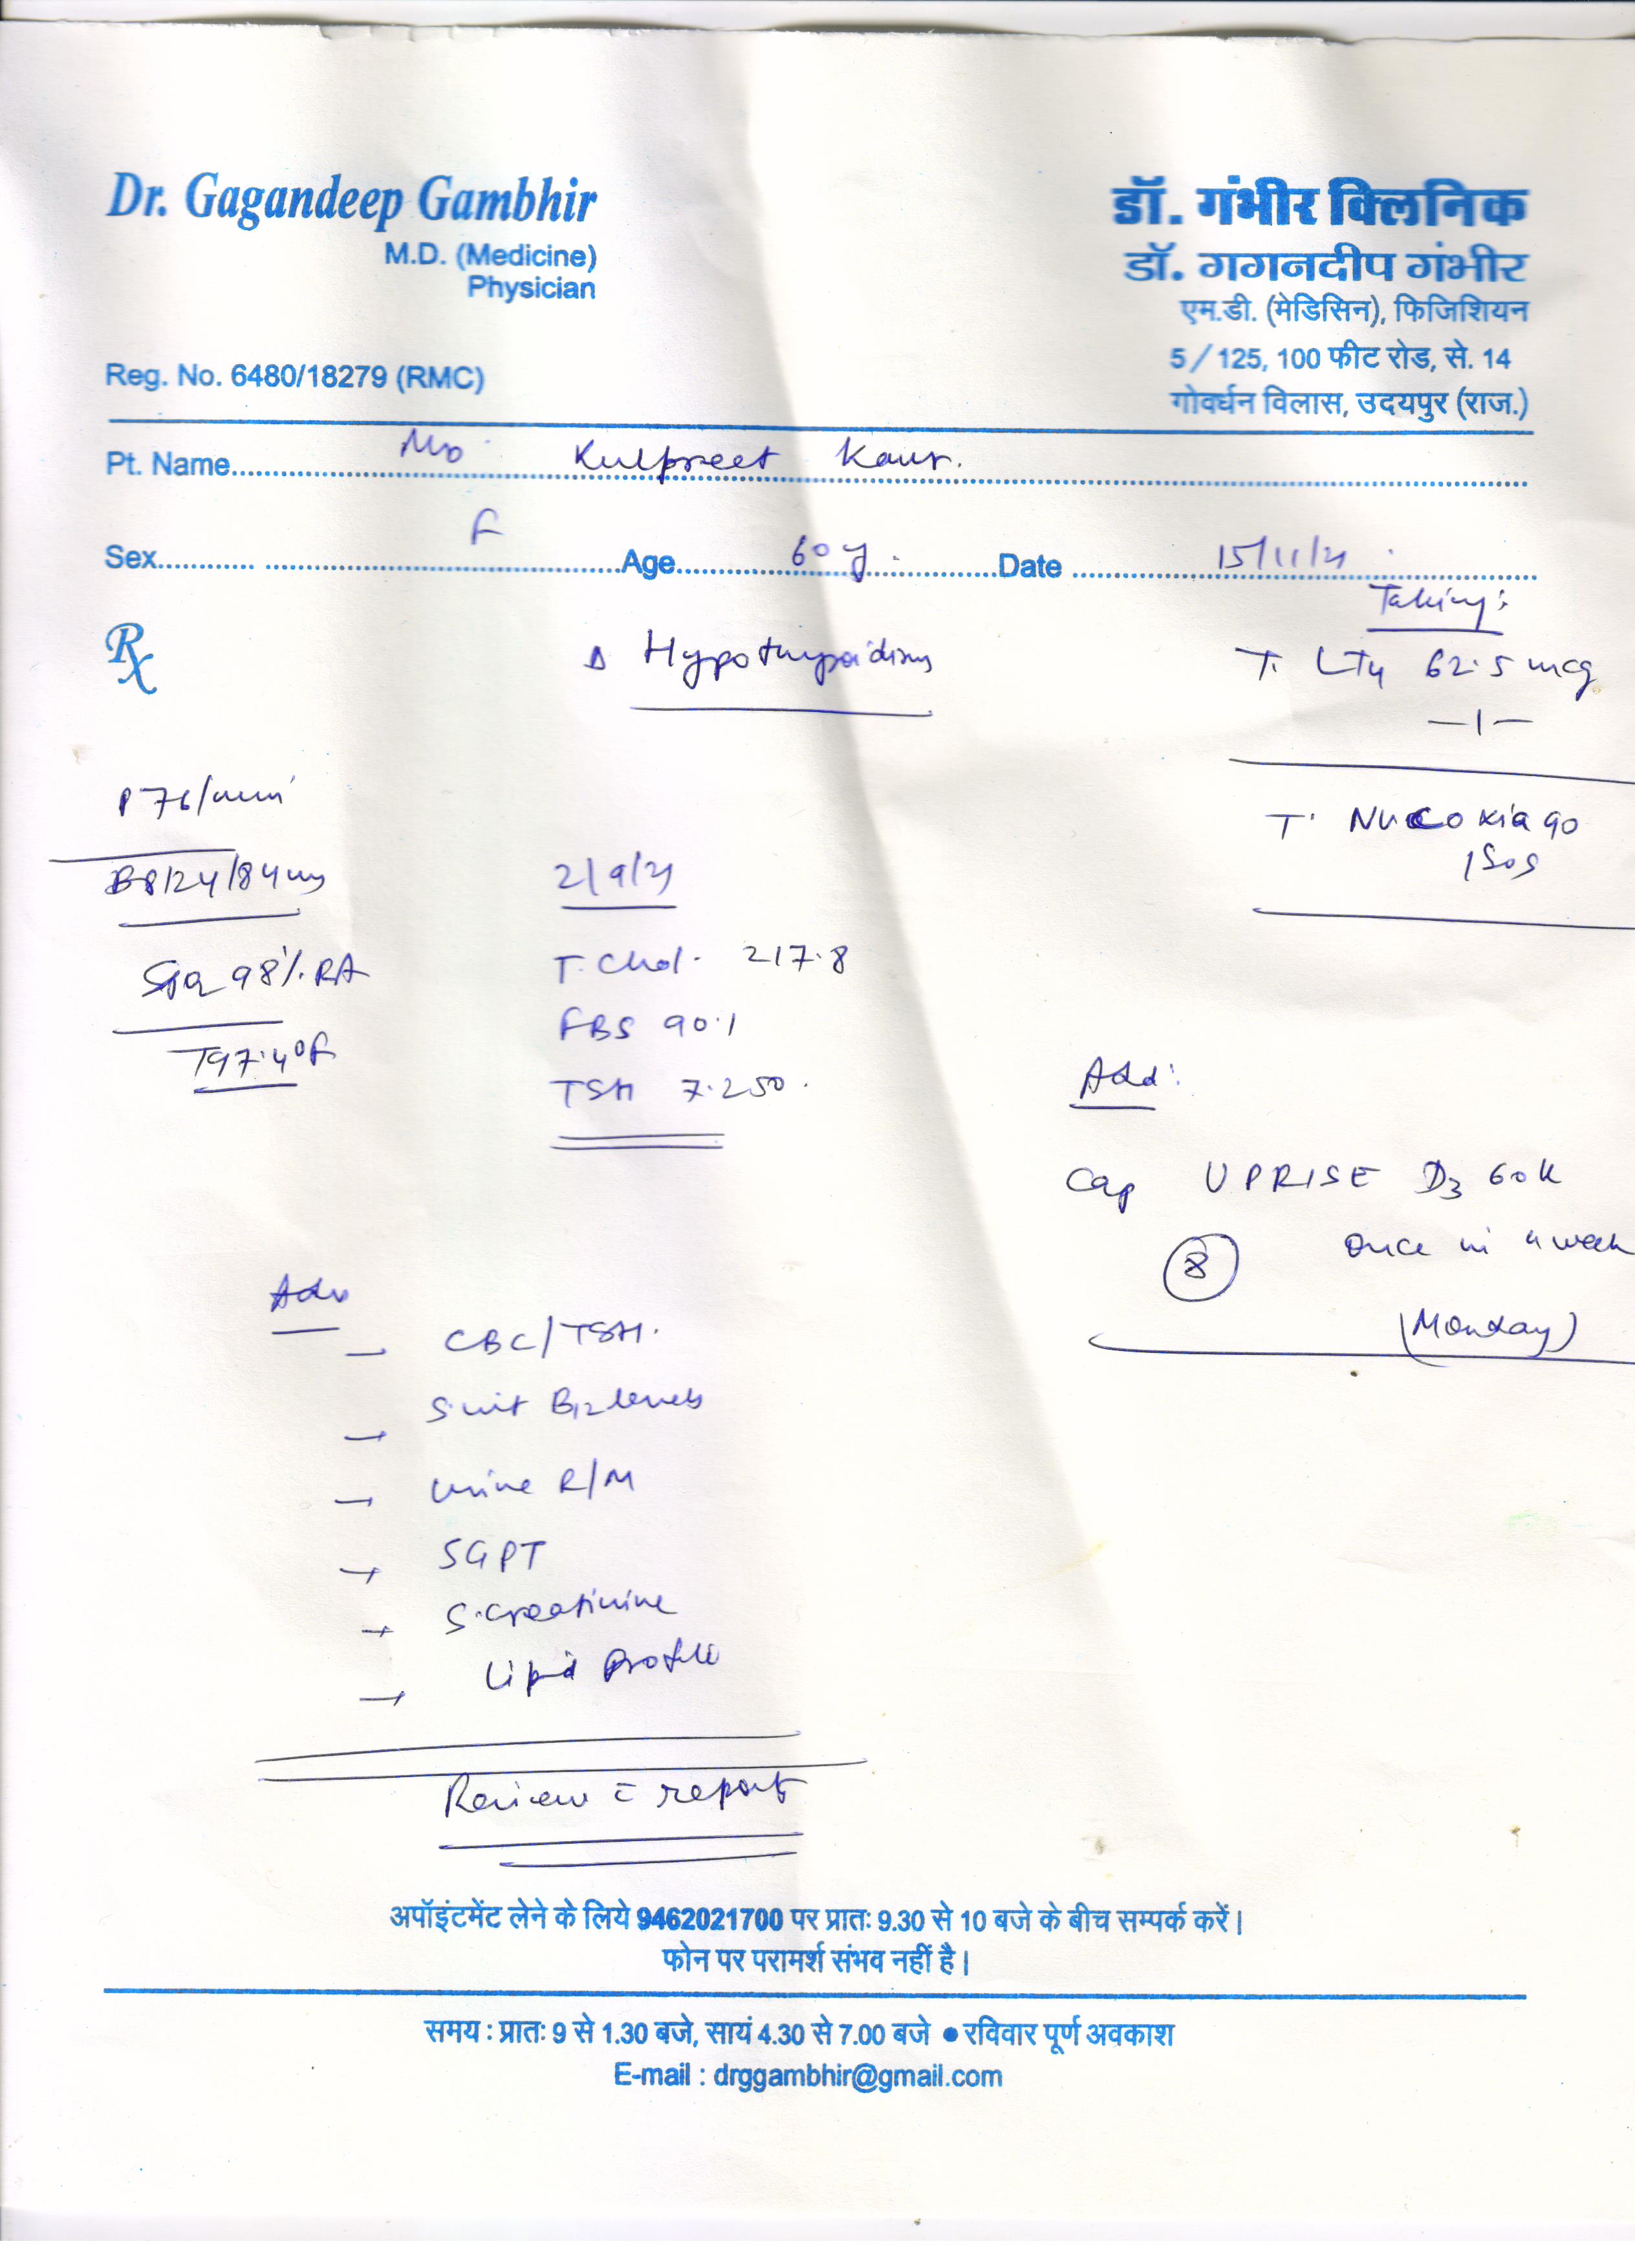 Dr. Gagandeep Gambhir
M.D. (Medicine)
Physician
Reg. No. 6480/18279 (RMC)
डॉ. गंभीर क्लिनिक
डॉ. गगनदीप गंभीर
एम.डी. (मेडिसिन), फिजिशियन
5/125, 100 फीट रोड, से. 14
गोवर्धन विलास, उदयपुर (राज.)
Pt. Name Kulpreet Kaur.
Sex F Age 60 y. Date 15/11/21
Rx
Δ Hypothyroidism
Taking:
T. LT4 62.5 mcg
—1—
T. Nucoxia 90
1 SOS
P 76/min
BP 124/84
98% RA
T 97.4°F
2/9/21
T. Chol. 217.8
FBS 90.1
TSH 7.250
Add:
Cap UPRISE D3 60K
once in a week
8
(Monday)
Adv
→ CBC/TSH.
→ S. vit B12 levels
→ Urine R/M
→ SGPT
→ S. creatinine
→ Lipid Profile
Review c̄ report
अपॉइंटमेंट लेने के लिये 9462021700 पर प्रातः 9.30 से 10 बजे के बीच सम्पर्क करें।
फोन पर परामर्श संभव नहीं है।
समय : प्रातः 9 से 1.30 बजे, सायं 4.30 से 7.00 बजे ● रविवार पूर्ण अवकाश
E-mail : drggambhir@gmail.com